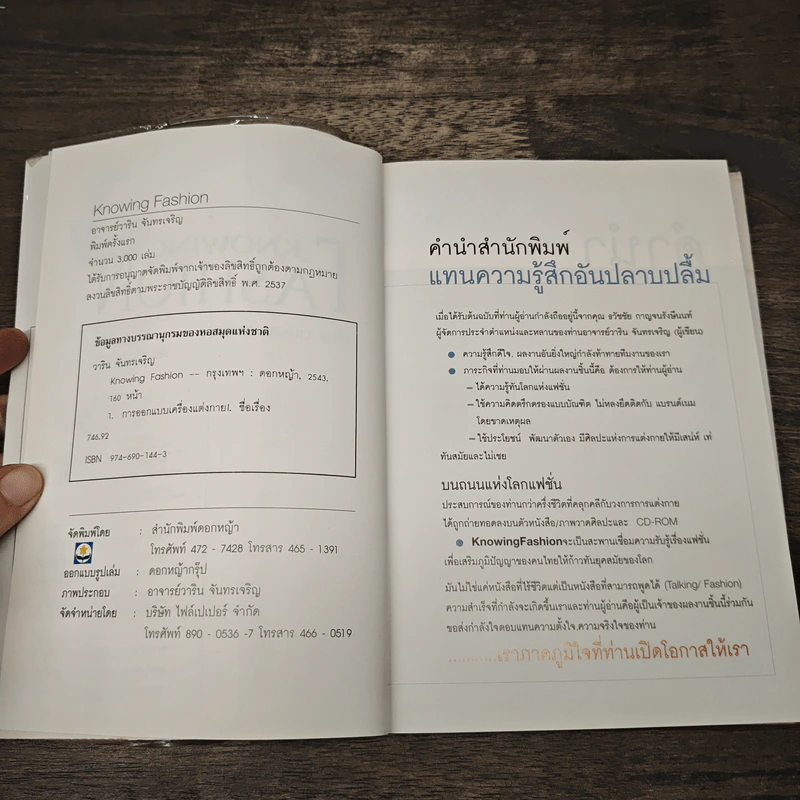 Knowing Fashion
อาจารย์วาริน จันทรเจริญ
พิมพ์ครั้งแรก
จำนวน 3,000 เล่ม
ได้รับการอนุญาตจัดพิมพ์จากเจ้าของลิขสิทธิ์ถูกต้องตามกฎหมาย
สงวนลิขสิทธิ์ตามพระราชบัญญัติลิขสิทธิ์ พ.ศ. 2537
ข้อมูลทางบรรณานุกรมของหอสมุดแห่งชาติ
วาริน จันทรเจริญ
Knowing Fashion -- กรุงเทพฯ : ดอกหญ้า, 2543.
160 หน้า
1. การออกแบบเครื่องแต่งกาย. I. ชื่อเรื่อง
746.92
ISBN 974-690-144-3
จัดพิมพ์โดย : สำนักพิมพ์ดอกหญ้า
โทรศัพท์ 472 - 7428 โทรสาร 465 - 1391
ออกแบบรูปเล่ม : ดอกหญ้ากรุ๊ป
ภาพประกอบ : อาจารย์วาริน จันทรเจริญ
จัดจำหน่ายโดย : บริษัท ไฟล์เปเปอร์ จำกัด
โทรศัพท์ 890 - 0536 -7 โทรสาร 466 - 0519
คำนำสำนักพิมพ์
แทนความรู้สึกอันปลาบปลื้ม
เมื่อได้รับต้นฉบับที่ท่านผู้อ่านกำลังถืออยู่นี้จากคุณ ธวัชชัย กาญจนรังษีนนท์
ผู้จัดการประจำตำแหน่งและหลานของท่านอาจารย์วาริน จันทรเจริญ (ผู้เขียน)
● ความรู้สึกดีใจ, ผลงานอันยิ่งใหญ่กำลังท้าทายทีมงานของเรา
● ภาระกิจที่ท่านมอบให้ผ่านผลงานชิ้นนี้คือ ต้องการให้ท่านผู้อ่าน
– ได้ความรู้ทันโลกแห่งแฟชั่น
– ใช้ความคิดตรึกตรองแบบบัณฑิต ไม่หลงยึดติดกับ แบรนด์เนม
โดยขาดเหตุผล
– ใช้ประโยชน์ พัฒนาตัวเอง มีศิลปะแห่งการแต่งกายให้มีเสน่ห์ เท่
ทันสมัยและไม่เชย
บนถนนแห่งโลกแฟชั่น
ประสบการณ์ของท่านกว่าครึ่งชีวิตที่คลุกคลีกับวงการการแต่งกาย
ได้ถูกถ่ายทอดลงบนตัวหนังสือ/ภาพวาดศิลปะและ CD-ROM
● KnowingFashionจะเป็นสะพานเชื่อมความรับรู้เรื่องแฟชั่น
เพื่อเสริมภูมิปัญญาของคนไทยให้ก้าวทันยุคสมัยของโลก
มันไม่ใช่แค่หนังสือที่ไร้ชีวิตแต่เป็นหนังสือที่สามารถพูดได้ (Talking/ Fashion)
ความสำเร็จที่กำลังจะเกิดขึ้นเราและท่านผู้อ่านคือผู้เป็นเจ้าของผลงานชิ้นนี้ร่วมกัน
ขอส่งกำลังใจตอบแทนความตั้งใจ,ความจริงใจของท่าน
...........เราภาคภูมิใจที่ท่านเปิดโอกาสให้เรา